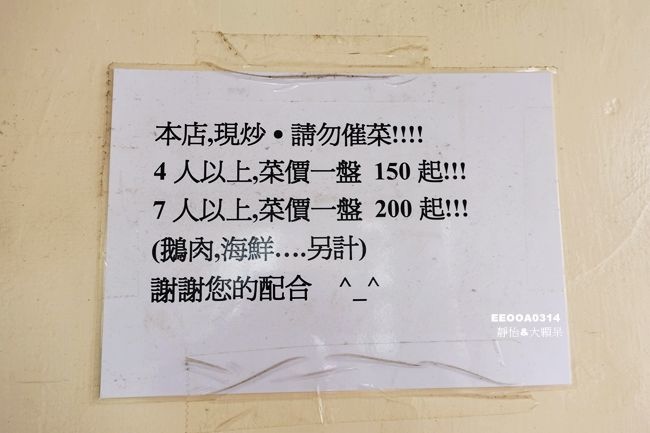 本店,現炒•請勿催菜!!!!
4 人以上,菜價一盤 150 起!!!
7 人以上,菜價一盤 200 起!!!
(鵝肉,海鮮....另計)
謝謝您的配合 ^_^
EEOOA0314
靜怡&大顆呆